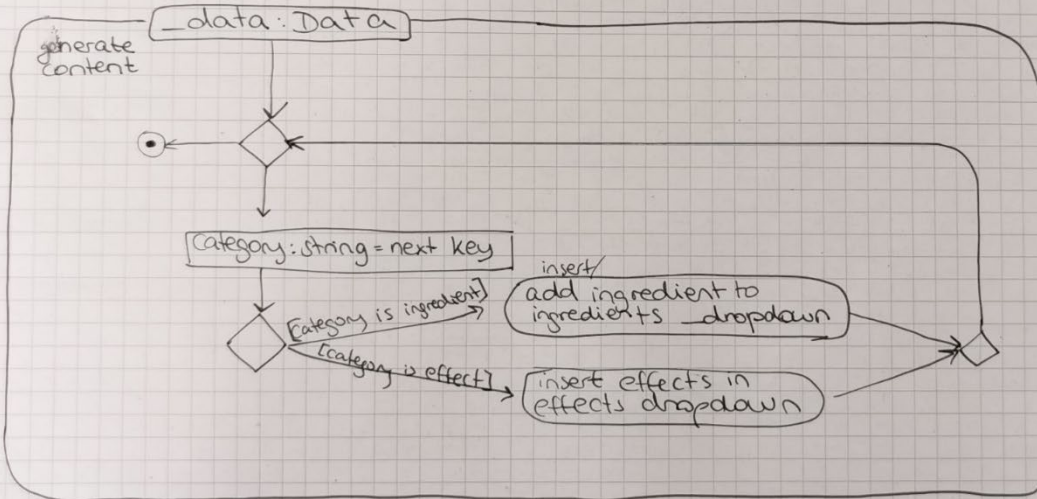 _data : Data
generate
content
category : string = next key
[category is ingredient]
insert/
add ingredient to
ingredients _dropdown
[category is effect]
insert effects in
effects dropdown